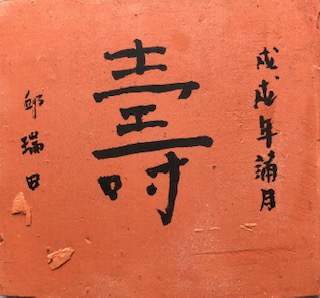 戊戌年蒲月
壽
邱瑞田